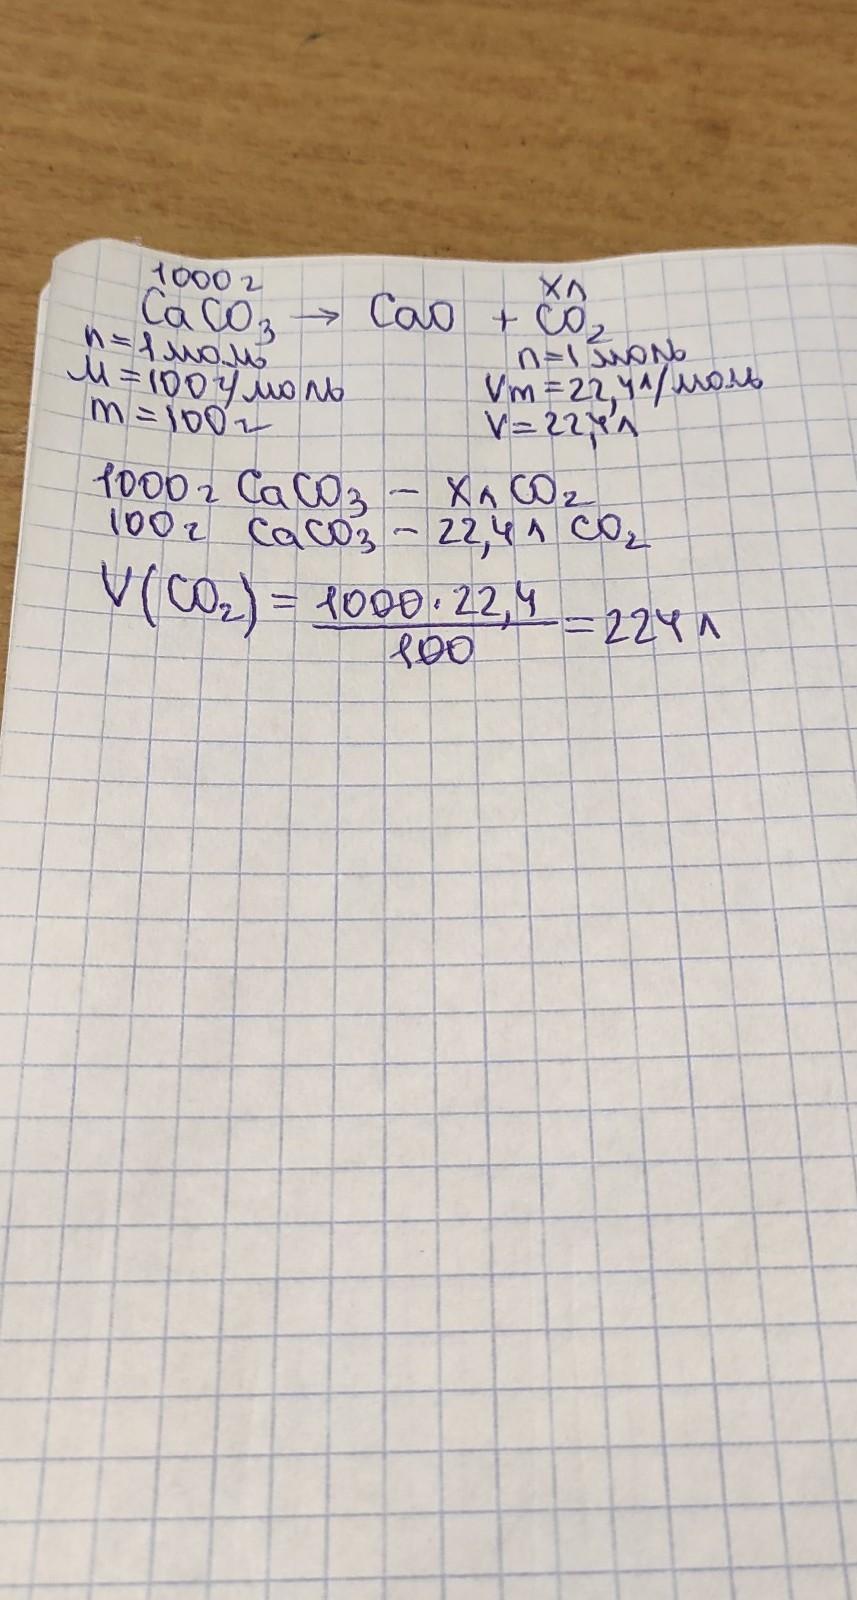 1000г xл
CaCO₃ → CaO + CO₂
n=1моль n=1моль
M=100г/моль Vm=22,4л/моль
m=100г V=22,4л
1000г CaCO₃ – xл CO₂
100г CaCO₃ – 22,4л CO₂
V(CO₂) = 1000·22,4
100
=224л